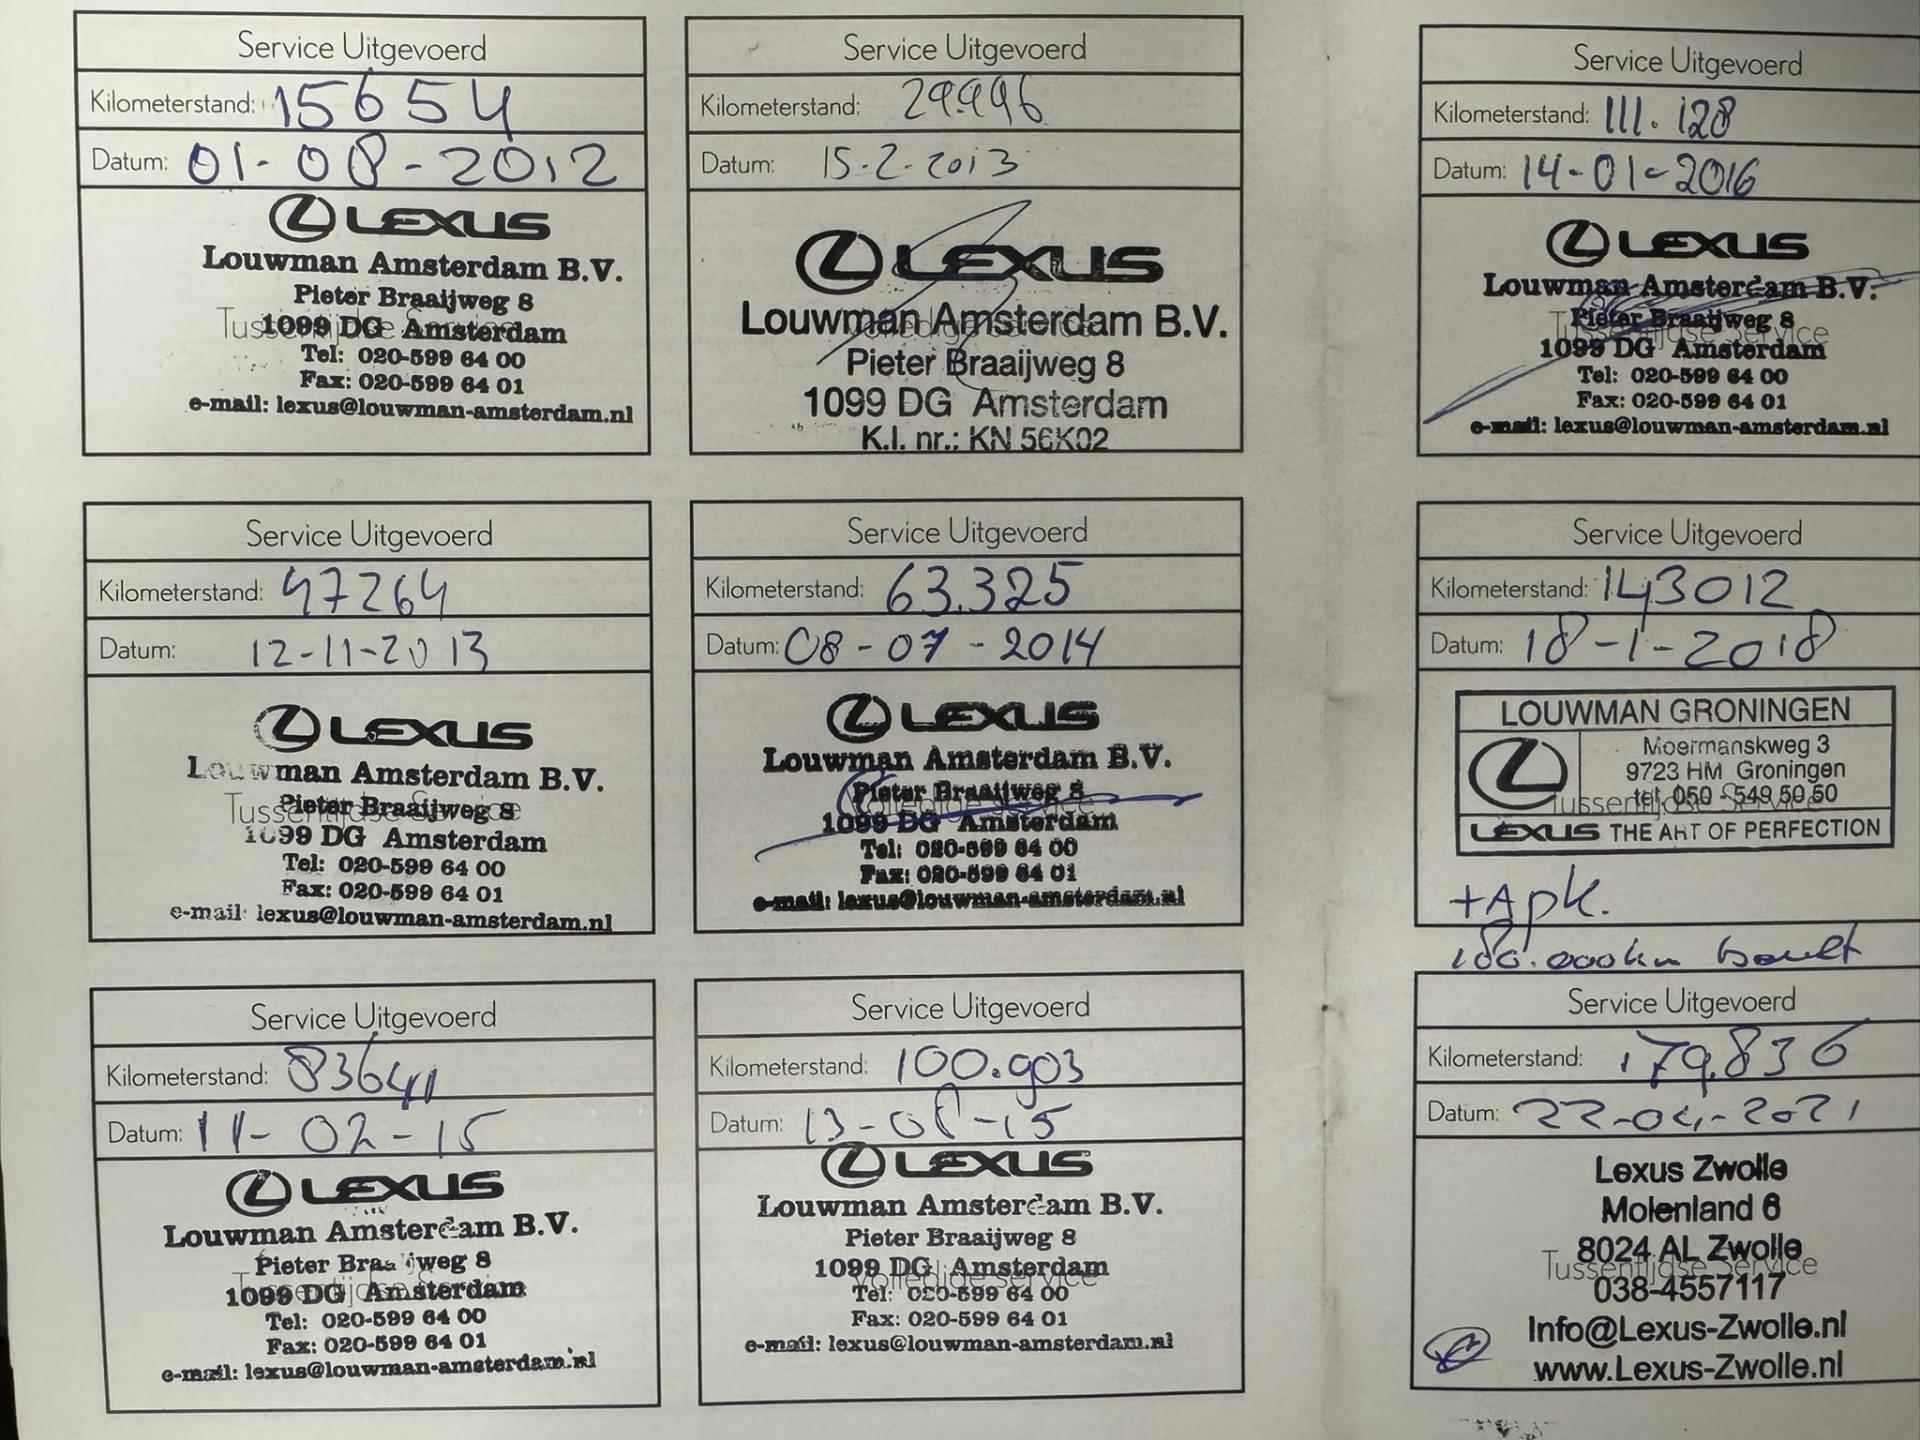 Service Uitgevoerd
Kilometerstand: 15654
Datum: 01-08-2012
LEXUS
Louwman Amsterdam B.V.
Pieter Braaijweg 8
Tussentijdse Service
1099 DG Amsterdam
Tel: 020-599 64 00
Fax: 020-599 64 01
e-mail: lexus@louwman-amsterdam.nl
Service Uitgevoerd
Kilometerstand: 29.996
Datum: 15-2-2013
LEXUS
Louwman Amsterdam B.V.
Volledige Service
Pieter Braaijweg 8
1099 DG Amsterdam
K.I. nr.: KN 56K02
Service Uitgevoerd
Kilometerstand: 111.128
Datum: 14-01-2016
LEXUS
Louwman Amsterdam B.V.
Pieter Braaijweg 8
Tussentijdse Service
1099 DG Amsterdam
Tel: 020-599 64 00
Fax: 020-599 64 01
e-mail: lexus@louwman-amsterdam.nl
Service Uitgevoerd
Kilometerstand: 47264
Datum: 12-11-2013
LEXUS
Louwman Amsterdam B.V.
Pieter Braaijweg 8
Tussentijdse Service
1099 DG Amsterdam
Tel: 020-599 64 00
Fax: 020-599 64 01
e-mail: lexus@louwman-amsterdam.nl
Service Uitgevoerd
Kilometerstand: 63.325
Datum: 08-07-2014
LEXUS
Louwman Amsterdam B.V.
Pieter Braaijweg 8
Volledige Service
1099 DG Amsterdam
Tel: 020-599 64 00
Fax: 020-599 64 01
e-mail: lexus@louwman-amsterdam.nl
Service Uitgevoerd
Kilometerstand: 143012
Datum: 18-1-2018
LOUWMAN GRONINGEN
Moermanskweg 3
9723 HM Groningen
tel. 050 - 549 50 60
Tussentijdse Service
LEXUS THE ART OF PERFECTION
+Apk.
180.000km beurt
Service Uitgevoerd
Kilometerstand: 83641
Datum: 11-02-15
LEXUS
Louwman Amsterdam B.V.
Pieter Braaijweg 8
Tussentijdse Service
1099 DG Amsterdam
Tel: 020-599 64 00
Fax: 020-599 64 01
e-mail: lexus@louwman-amsterdam.nl
Service Uitgevoerd
Kilometerstand: 100.903
Datum: 13-08-15
LEXUS
Louwman Amsterdam B.V.
Pieter Braaijweg 8
1099 DG Amsterdam
Volledige Service
Tel: 020-599 64 00
Fax: 020-599 64 01
e-mail: lexus@louwman-amsterdam.nl
Service Uitgevoerd
Kilometerstand: 179.836
Datum: 22-04-2021
Lexus Zwolle
Molenland 6
8024 AL Zwolle
Tussentijdse Service
038-4557117
Info@Lexus-Zwolle.nl
www.Lexus-Zwolle.nl